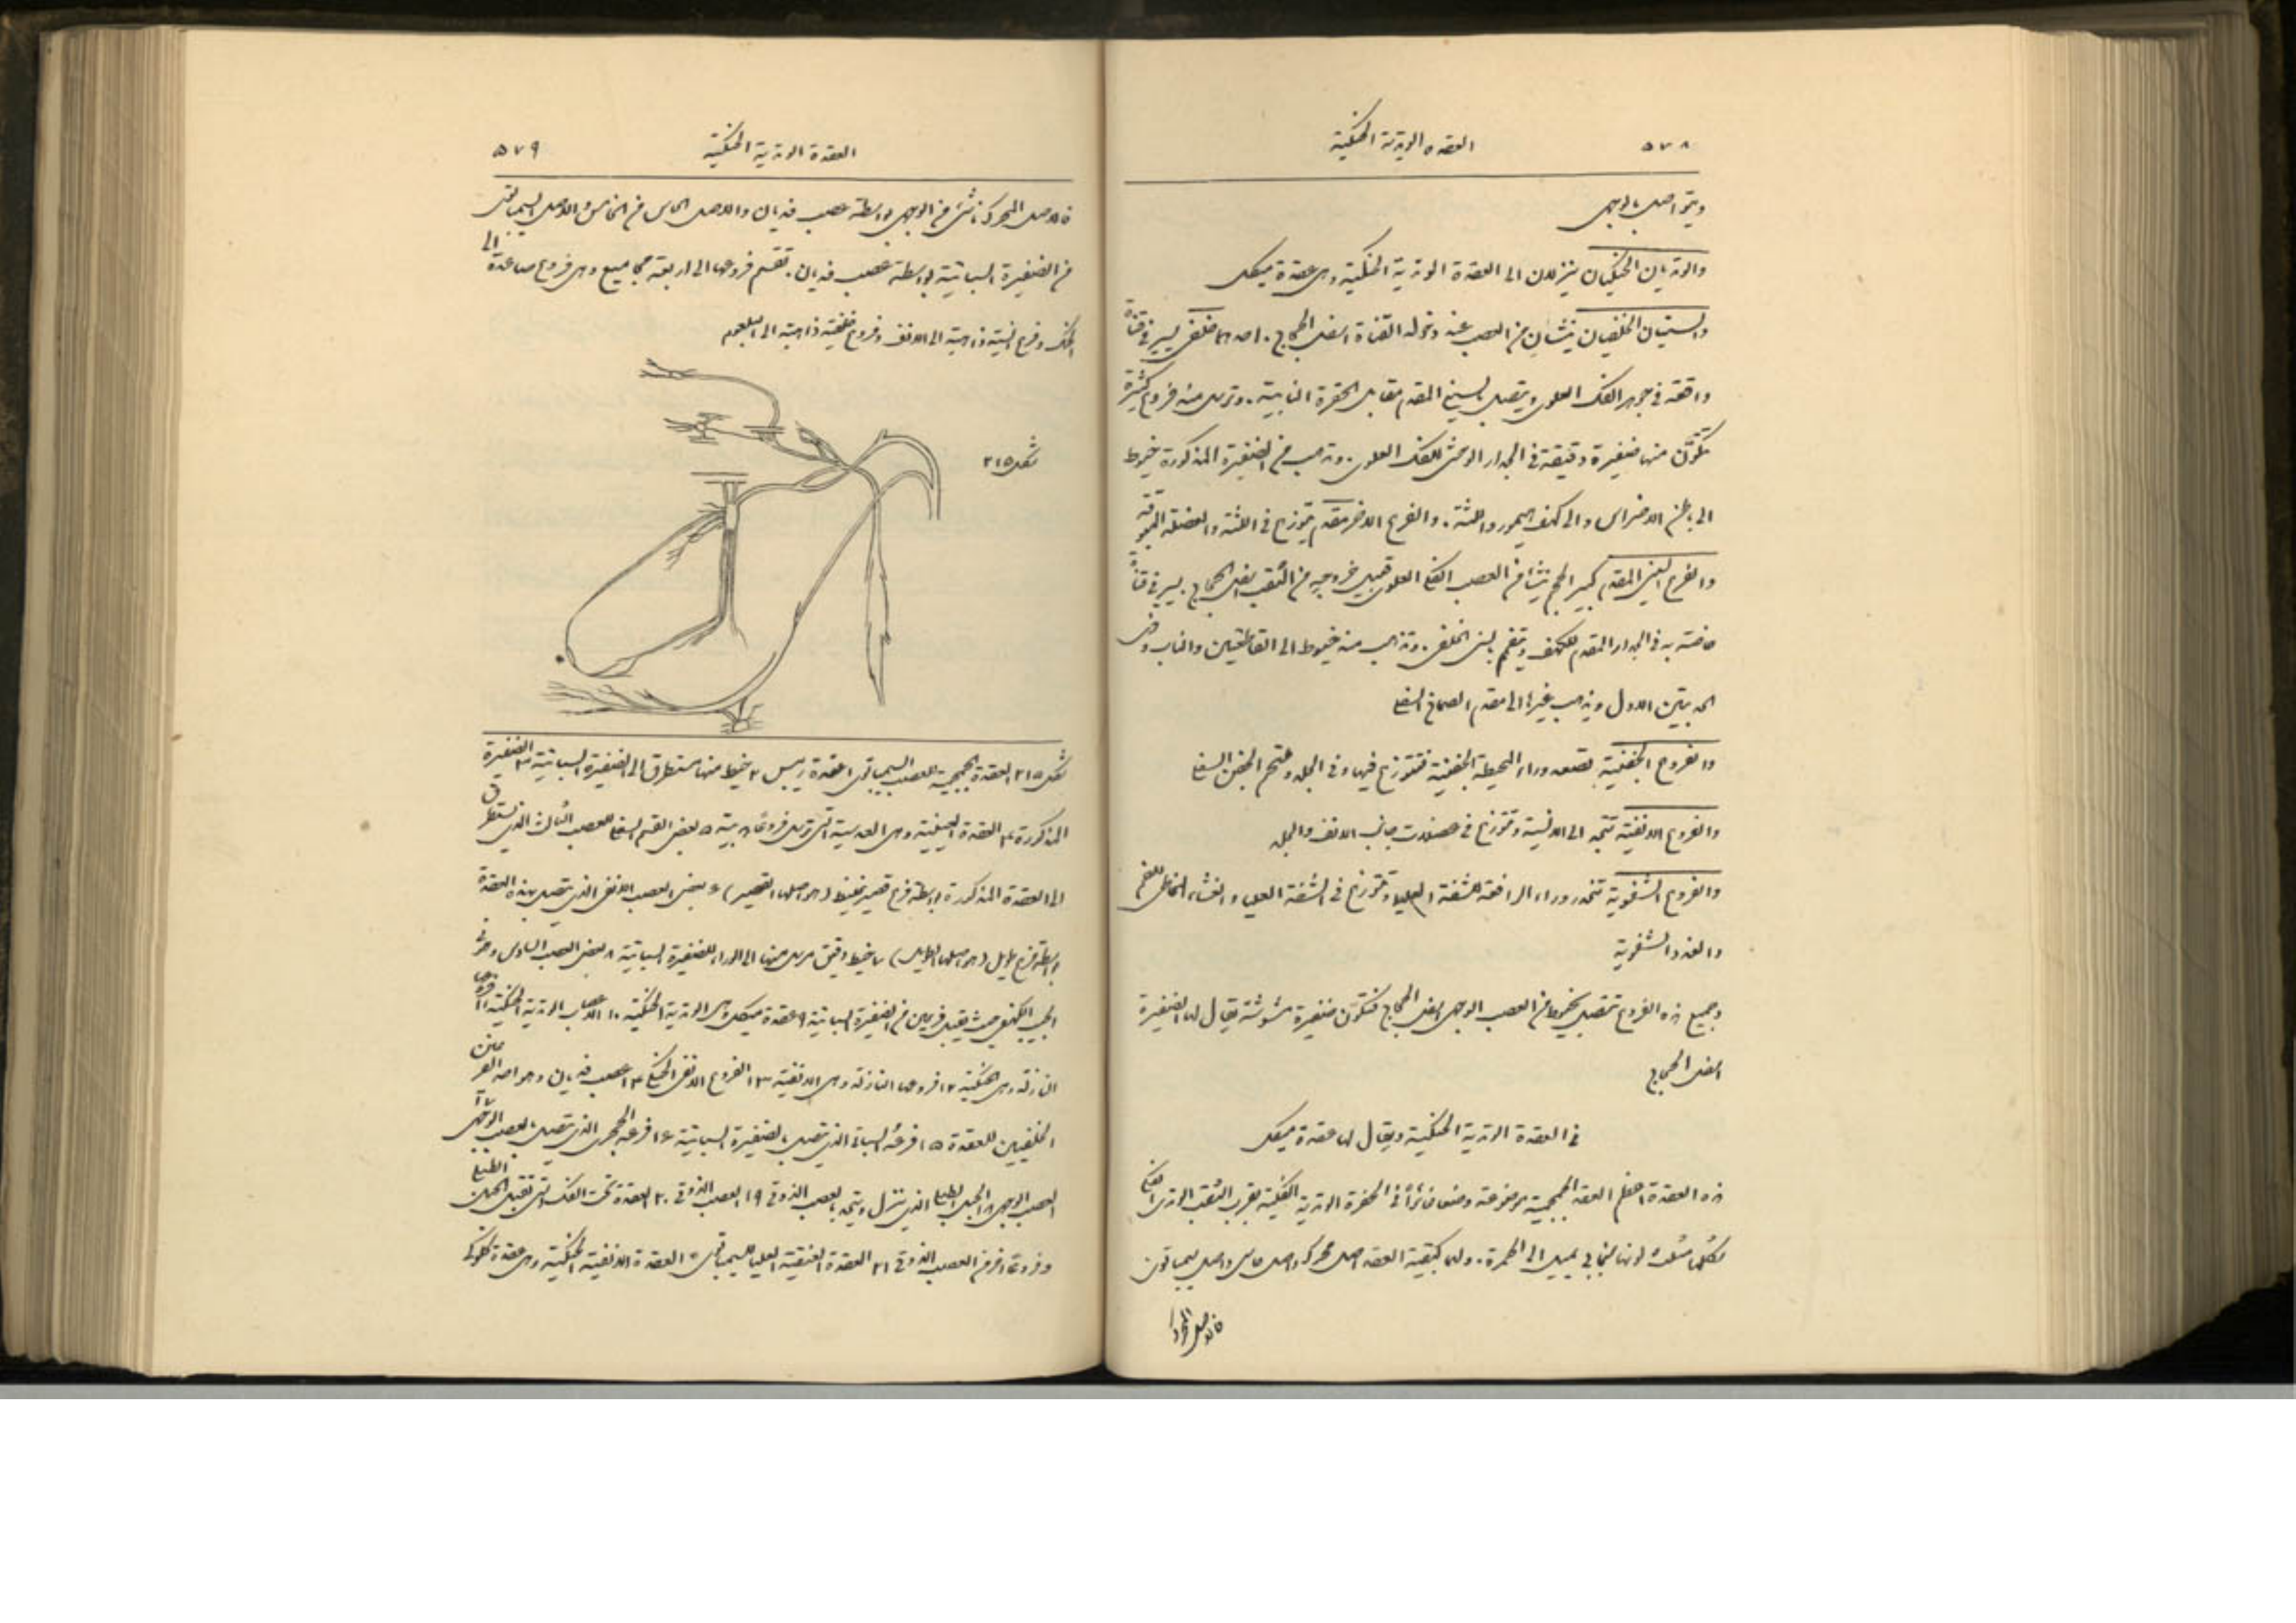 ٥٧٨
العقدة الوتدية الحنكية
ويتواصل بالوجهي
والوتديان الحنكيان ينزلان الى العقدة الوتدية الحنكية وهى عقدة ميكل
والسنيان الخلفيان ينشان من العصب عند دخوله القناة اسفل الحجاج. احدهما خلفى يسير فى قناة
واقعة فى جوهر الفك العلوى ويتصل بالسنى المقدم مقابل الحفرة النابية. وترسل منه فروع كثيرة
تتكون منها ضفيرة دقيقة فى الجدار الوحشى للفك العلوى. وتذهب من الضفيرة المذكورة خيوط
الى باطن الاضراس والى كهف هيمور واللثة. والفرع الاخر مقدم يتوزع فى اللثة والعضلة المبوقة
والفرع السنى المقدم كبير الحجم ينشأ من العصب الفكى العلوى قبيل خروجه من الثقب اسفل الحجاج يسير فى قناة
خاصة به فى الجدار المقدم للكهف ويتفمم بالسنى الخلفى. وتذهب منه خيوط الى القاطعين والناب وذى
الحدبتين الاول ويذهب غيرها الى مقدم الصماخ السفلى
والفروع الجفنية تصعد وراء المحيطة الجفنية فتتوزع فيها وفى الجلد وملتحم الجفن السفلى
والفروع الانفية تتجه الى الانسية وتتوزع فى عضلات جانب الانف والجلد
والفروع الشفوية تنحدر وراء الرافعة للشفة العليا وتتوزع فى الشفة العليا والغشاء المخاطى للفم
والغدد الشفوية
وجميع هذه الفروع تتصل بخيوط من العصب الوجهى اسفل الحجاج فتتكون ضفيرة مشوشة يقال لها الضفيرة
اسفل الحجاج
فى العقدة الوتدية الحنكية ويقال لها عقدة ميكل
هذه العقدة اعظم العقد الجمجمية موضوعة وضعا غائرا فى الحفرة الوتدية الفكية بقرب الثقب الوتدى الحنكى
شكلها مثلث لونها سنجابى يميل الى الحمرة. ولها كبقية العقد اصل محرك واصل حاس واصل سيمباثوى
فالاصل المحرك
٥٧٩
العقدة الوتدية الحنكية
فالاصل المحرك ناشئ من الوجهى بواسطة عصب فديان والاصل الحاس من الخامس والاصل السيمباثوى
من الضفيرة السباتية بواسطة عصب فديان. تقسم فروعها الى اربعة مجاميع وهى فروع صاعدة الى
الحنك وفروع انسية ذاهبة الى الانف وفروع خلفية ذاهبة الى البلعوم
شكل ٢١٥
شكل ٢١٥ العقدة الجمجمية للعصب السيمباثوى ١ عقدة ريبس ٢ خيط منها مستطرق الى الضفيرة السباتية ٣ الضفيرة
المذكورة ٤ العقدة العينية وهى العدسية التى ترسل فروعًا هدبية ٥ بعض القسم السفلى للعصب الثالث الذى يستطرق
الى العقدة المذكورة بواسطة فرع قصير غليظ (هو اصلها القصير) ٦ بعض العصب الانفى الذى يتصل بهذه العقدة
بواسطة فرع طويل (هو اصلها الطويل) ٧ خيط دقيق مرسل منها الى الوراء للضفيرة السباتية ٨ بعض العصب السادس وهو فى
الجيب الكهفى حيث يقبل فرعين من الضفيرة السباتية ٩ عقدة ميكل وهى الوتدية الحنكية ١٠ الاعصاب الوتدية الحنكية ١١ فروعها
النازلة وهى الحنكية ١٢ فروعها النازلة وهى الانفية ١٣ الفروع الانفى الحنكى ١٤ عصب فديان وهو احد الفرعين
الخلفيين للعقدة ١٥ فرعه السباتى الذى يتصل بالضفيرة السباتية ١٦ فرعه الحجرى الذى يتصل بالعصب الوجهى ١٧
العصب الوجهى ١٨ الحبل الطبلى الذى ينزل ويتحد بالعصب الذوقى ١٩ العصب الذوقى ٢٠ العقدة تحت الفك التى تقبل الحبل الطبلى
وفروعًا اخر من العصب الذوقى ٢١ العقدة العنقية العليا للسيمباثوى ٥ العقدة الانفية الحنكية وهى عقدة كلوكى